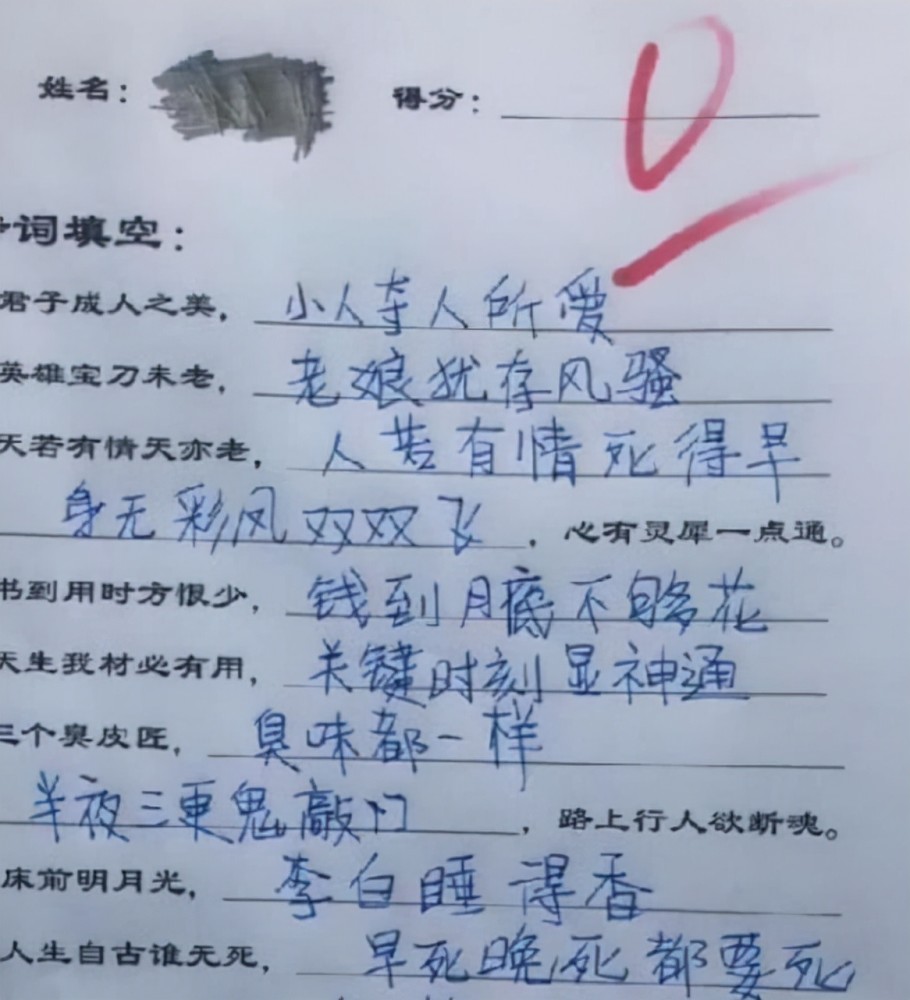 姓名： 得分： 0
词填空：
君子成人之美，小人夺人所爱
英雄宝刀未老，老娘犹存风骚
天若有情天亦老，人若有情死得早
身无彩凤双双飞，心有灵犀一点通。
书到用时方恨少，钱到月底不够花
天生我材必有用，关键时刻显神通
三个臭皮匠，臭味都一样
半夜三更鬼敲门，路上行人欲断魂。
床前明月光，李白睡得香
人生自古谁无死，早死晚死都要死